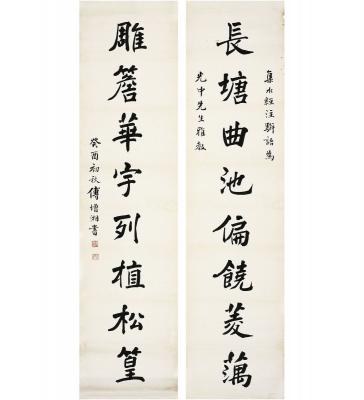 集水經注駢語為
長塘曲池偏饒菱藕
光中先生雅教
雕簷華宇列植松篁
癸酉初秋傅增湘書